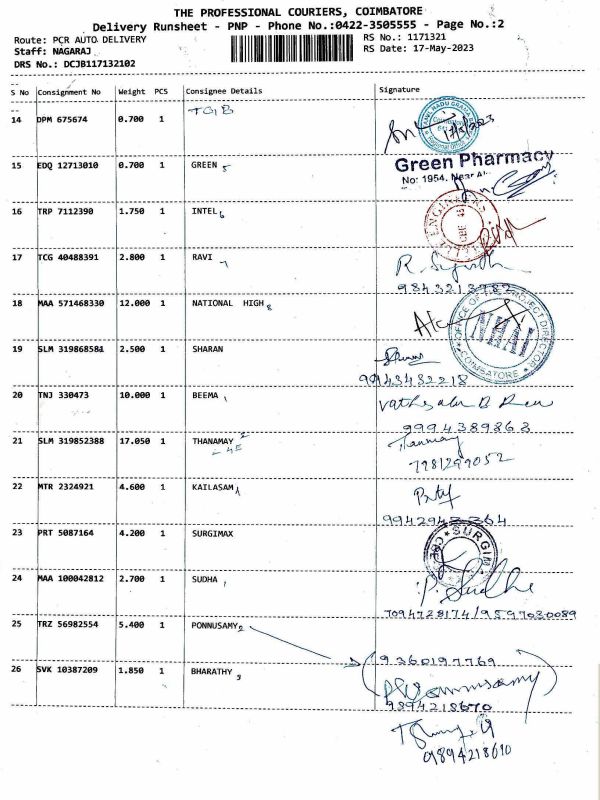 THE PROFESSIONAL COURIERS, COIMBATORE
Delivery Runsheet - PNP - Phone No.:0422-3505555 - Page No.:2
Route: PCR AUTO DELIVERY
RS No.: 1171321
Staff: NAGARAJ
RS Date: 17-May-2023
DRS No.: DCJB117132102
S No Consignment No Weight PCS Consignee Details Signature
14 DPM 675674 0.700 1 TGB
15 EDQ 12713010 0.700 1 GREEN 5
Green Pharmacy
No: 1954, Near
16 TRP 7112390 1.750 1 INTEL 6
17 TCG 40488391 2.800 1 RAVI
9843213782
18 MAA 571468330 12.000 1 NATIONAL HIGH 8
OFFICE OF THE PROJECT DIRECTOR
COIMBATORE
19 SLM 319868581 2.500 1 SHARAN
9943432218
20 TNJ 330473 10.000 1 BEEMA
9994389863
21 SLM 319852388 17.050 1 THANAMAY 2
Thanmay
7981299052
22 MTR 2324921 4.600 1 KAILASAM
9942943364
23 PRT 5087164 4.200 1 SURGIMAX
SURGIM
CBE
24 MAA 100042812 2.700 1 SUDHA
P. Sudha
7094728174/9597030089
25 TRZ 56982554 5.400 1 PONNUSAMY 2
9360197769
26 SVK 10387209 1.850 1 BHARATHY 3
Ponnusamy
9894218670
09894218610